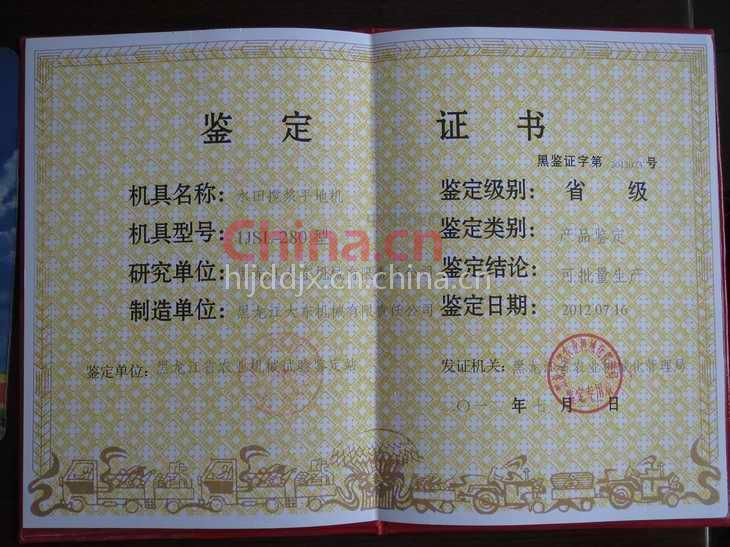 鉴定证书
黑鉴证字第 号
机具名称: 水田搅浆平地机
鉴定级别: 省级
机具型号: 1JSL-280型
鉴定类别: 产品鉴定
China.cn
研究单位:
鉴定结论: 可批量生产
hljddjx.cn.china.cn
制造单位: 黑龙江大东机械有限责任公司
鉴定日期: 2012.07.16
鉴定单位: 黑龙江省农业机械试验鉴定站
发证机关: 黑龙江省农业机械化管理局
年七月 日